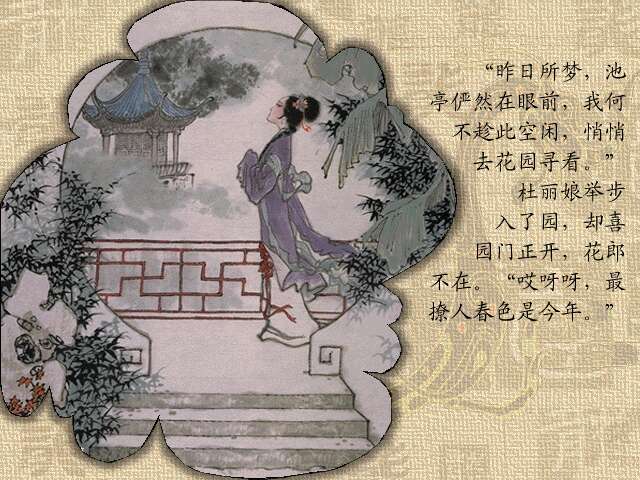 “昨日所梦，池
亭俨然在眼前，我何
不趁此空闲，悄悄
去花园寻看。”
杜丽娘举步
入了园，却喜
园门正开，花郎
不在。“哎呀呀，最
撩人春色是今年。”